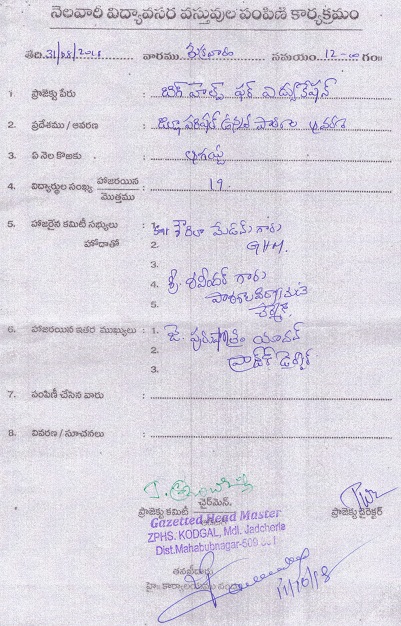 నెలవారీ విద్యావసర వస్తువుల పంపిణి కార్యక్రమం
తేది. 31/08/2018 వారము. శుక్రవారం సమయం. 12-00 గం॥
1 ప్రాజెక్టు పేరు : బిగ్ హెల్ప్ ఫర్ ఎడ్యుకేషన్
2. ప్రదేశము / ఆవరణ : జిల్లా పరిషత్ ఉన్నత పాఠశాల
3. ఏ నెల కొఱకు : ఆగష్టు
4. విద్యార్థుల సంఖ్య హాజరయిన / మొత్తము : 19.
5. హాజరైన కమిటీ సభ్యులు : 1. మేడమ్ గారు
హోదాతో 2. GHM.
3.
4. శ్రీ. రవీందర్ గారు
5.
6. హాజరయిన ఇతర ముఖ్యులు : 1. జె. పురుషోత్తం యాదవ్
2. ప్రాజెక్ట్ డైరెక్టర్
3.
7. పంపిణీ చేసిన వారు :
8. వివరణ / సూచనలు :
ఛైర్మెన్.
ప్రాజెక్టు కమిటీ ప్రాజెక్టు డైరెక్టర్
Gazetted Head Master
ZPHS. KODGAL, Mdl. Jadcherla
Dist.Mahabubnagar-509
11/10/18